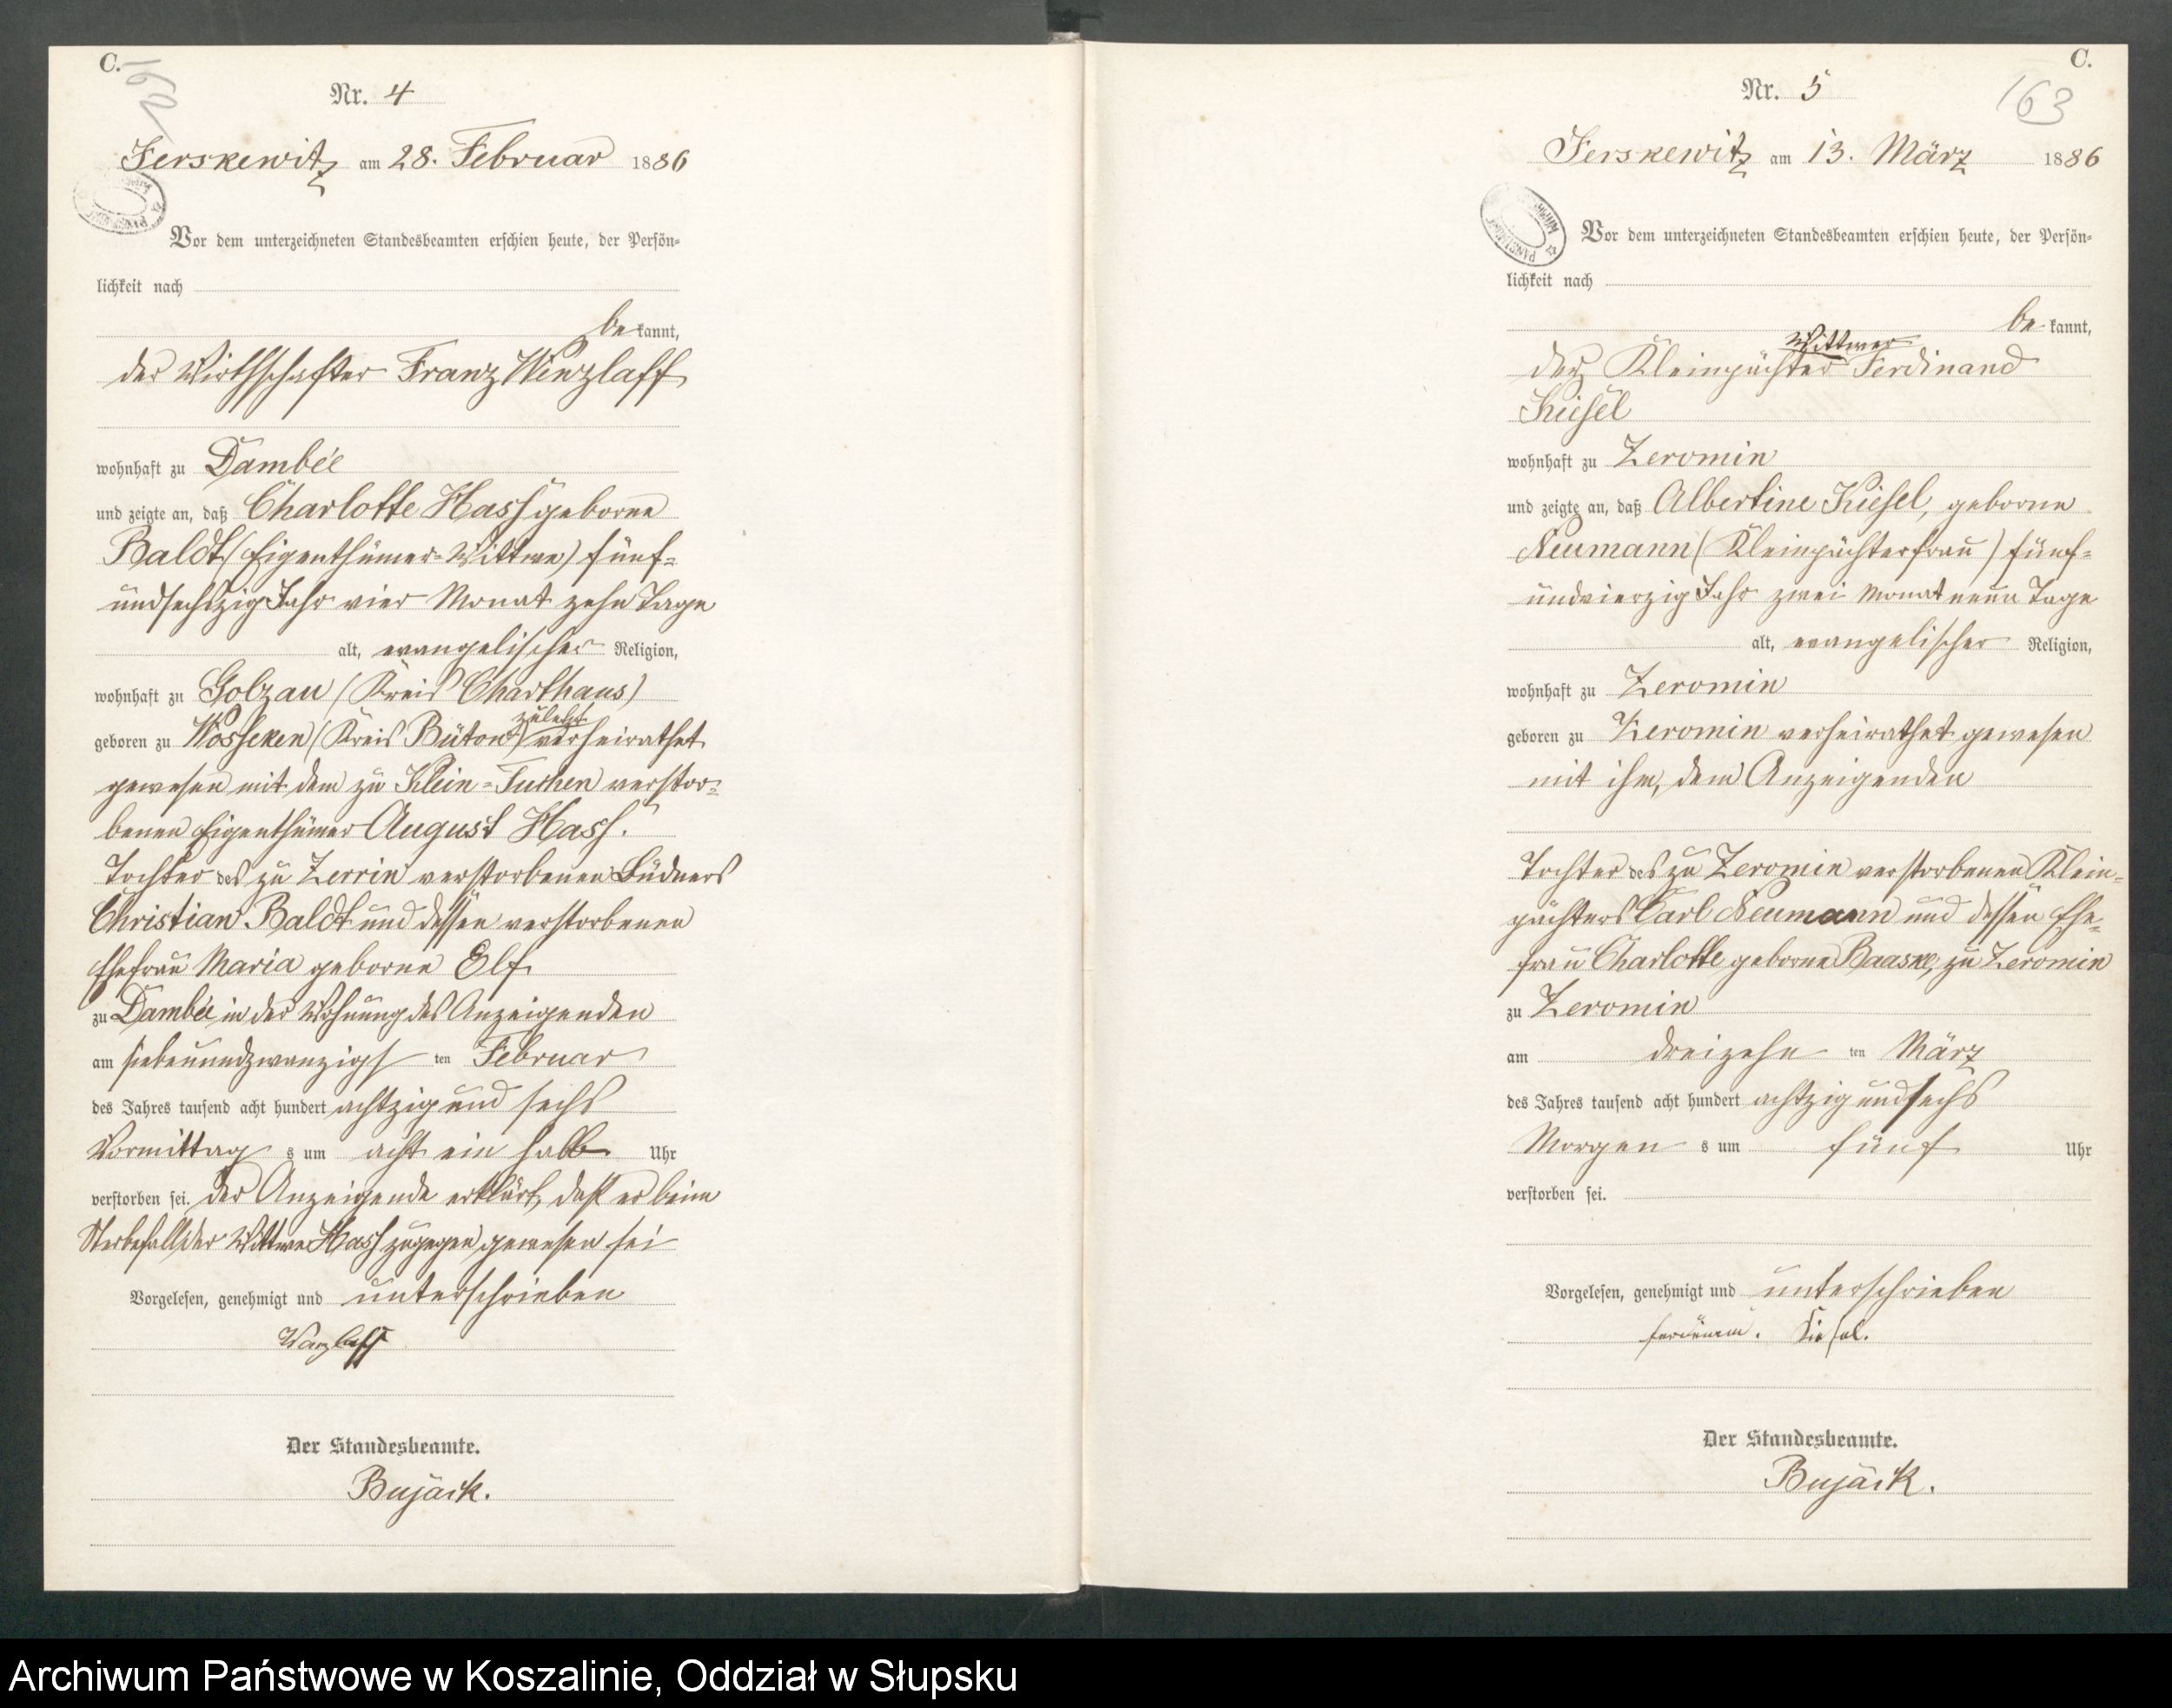 C.
Nr. 4
Jerskewitz am 28. Februar 1886
Vor dem unterzeichneten Standesbeamten erschien heute, der Persön-
lichkeit nach
be kannt,
der Wirthschafter Franz Wenzlaff
wohnhaft zu Dambée
und zeigte an, daß Charlotte Hass geborne
Baldt (Eigenthümer-Wittwe) fünf-
undsechszig Jahr vier Monat zehn Tage
alt, evangelischer Religion,
wohnhaft zu Golzau (Kreis Charthaus)
zuletzt
geboren zu Wosseken (Kreis Bütow) verheirathet
gewesen mit dem zu Klein-Tuchen verstor-
benen Eigenthümer August Hass.
Tochter des zu Zerrin verstorbenen Büdners
Christian Baldt und dessen verstorbenen
Ehefrau Maria geborne Elf
zu Dambée in der Wohnung des Anzeigenden
am siebenundzwanzigs ten Februar
des Jahres tausend acht hundert achtzig und sechs
Vormittag s um acht ein halb Uhr
verstorben sei. Der Anzeigende erklärt, daß er beim
Sterbefall der Wittwe Hass zugegen gewesen sei
Vorgelesen, genehmigt und unterschrieben
Wenzlaff
Der Standesbeamte.
Bujack.
C.
163
Nr. 5
Jerskewitz am 13. März 1886
Vor dem unterzeichneten Standesbeamten erschien heute, der Persön-
lichkeit nach
be kannt,
Wittwer
der Kleinpächter Ferdinand
Kiesel
wohnhaft zu Zeromin
und zeigte an, daß Albertine Kiesel, geborne
Neumann (Kleinpächterfrau) fünf-
undvierzig Jahr zwei Monat neun Tage
alt, evangelischer Religion,
wohnhaft zu Zeromin
geboren zu Zeromin verheirathet gewesen
mit ihm, dem Anzeigenden
Tochter des zu Zeromin verstorbenen Klein-
pächters Carl Neumann und dessen Ehe-
frau Charlotte geborne Baaske, zu Zeromin
zu Zeromin
am dreizehn ten März
des Jahres tausend acht hundert achtzig und sechs
Morgen s um fünf Uhr
verstorben sei.
Vorgelesen, genehmigt und unterschrieben
Kiesel.
Der Standesbeamte.
Bujack.
Archiwum Państwowe w Koszalinie, Oddział w Słupsku